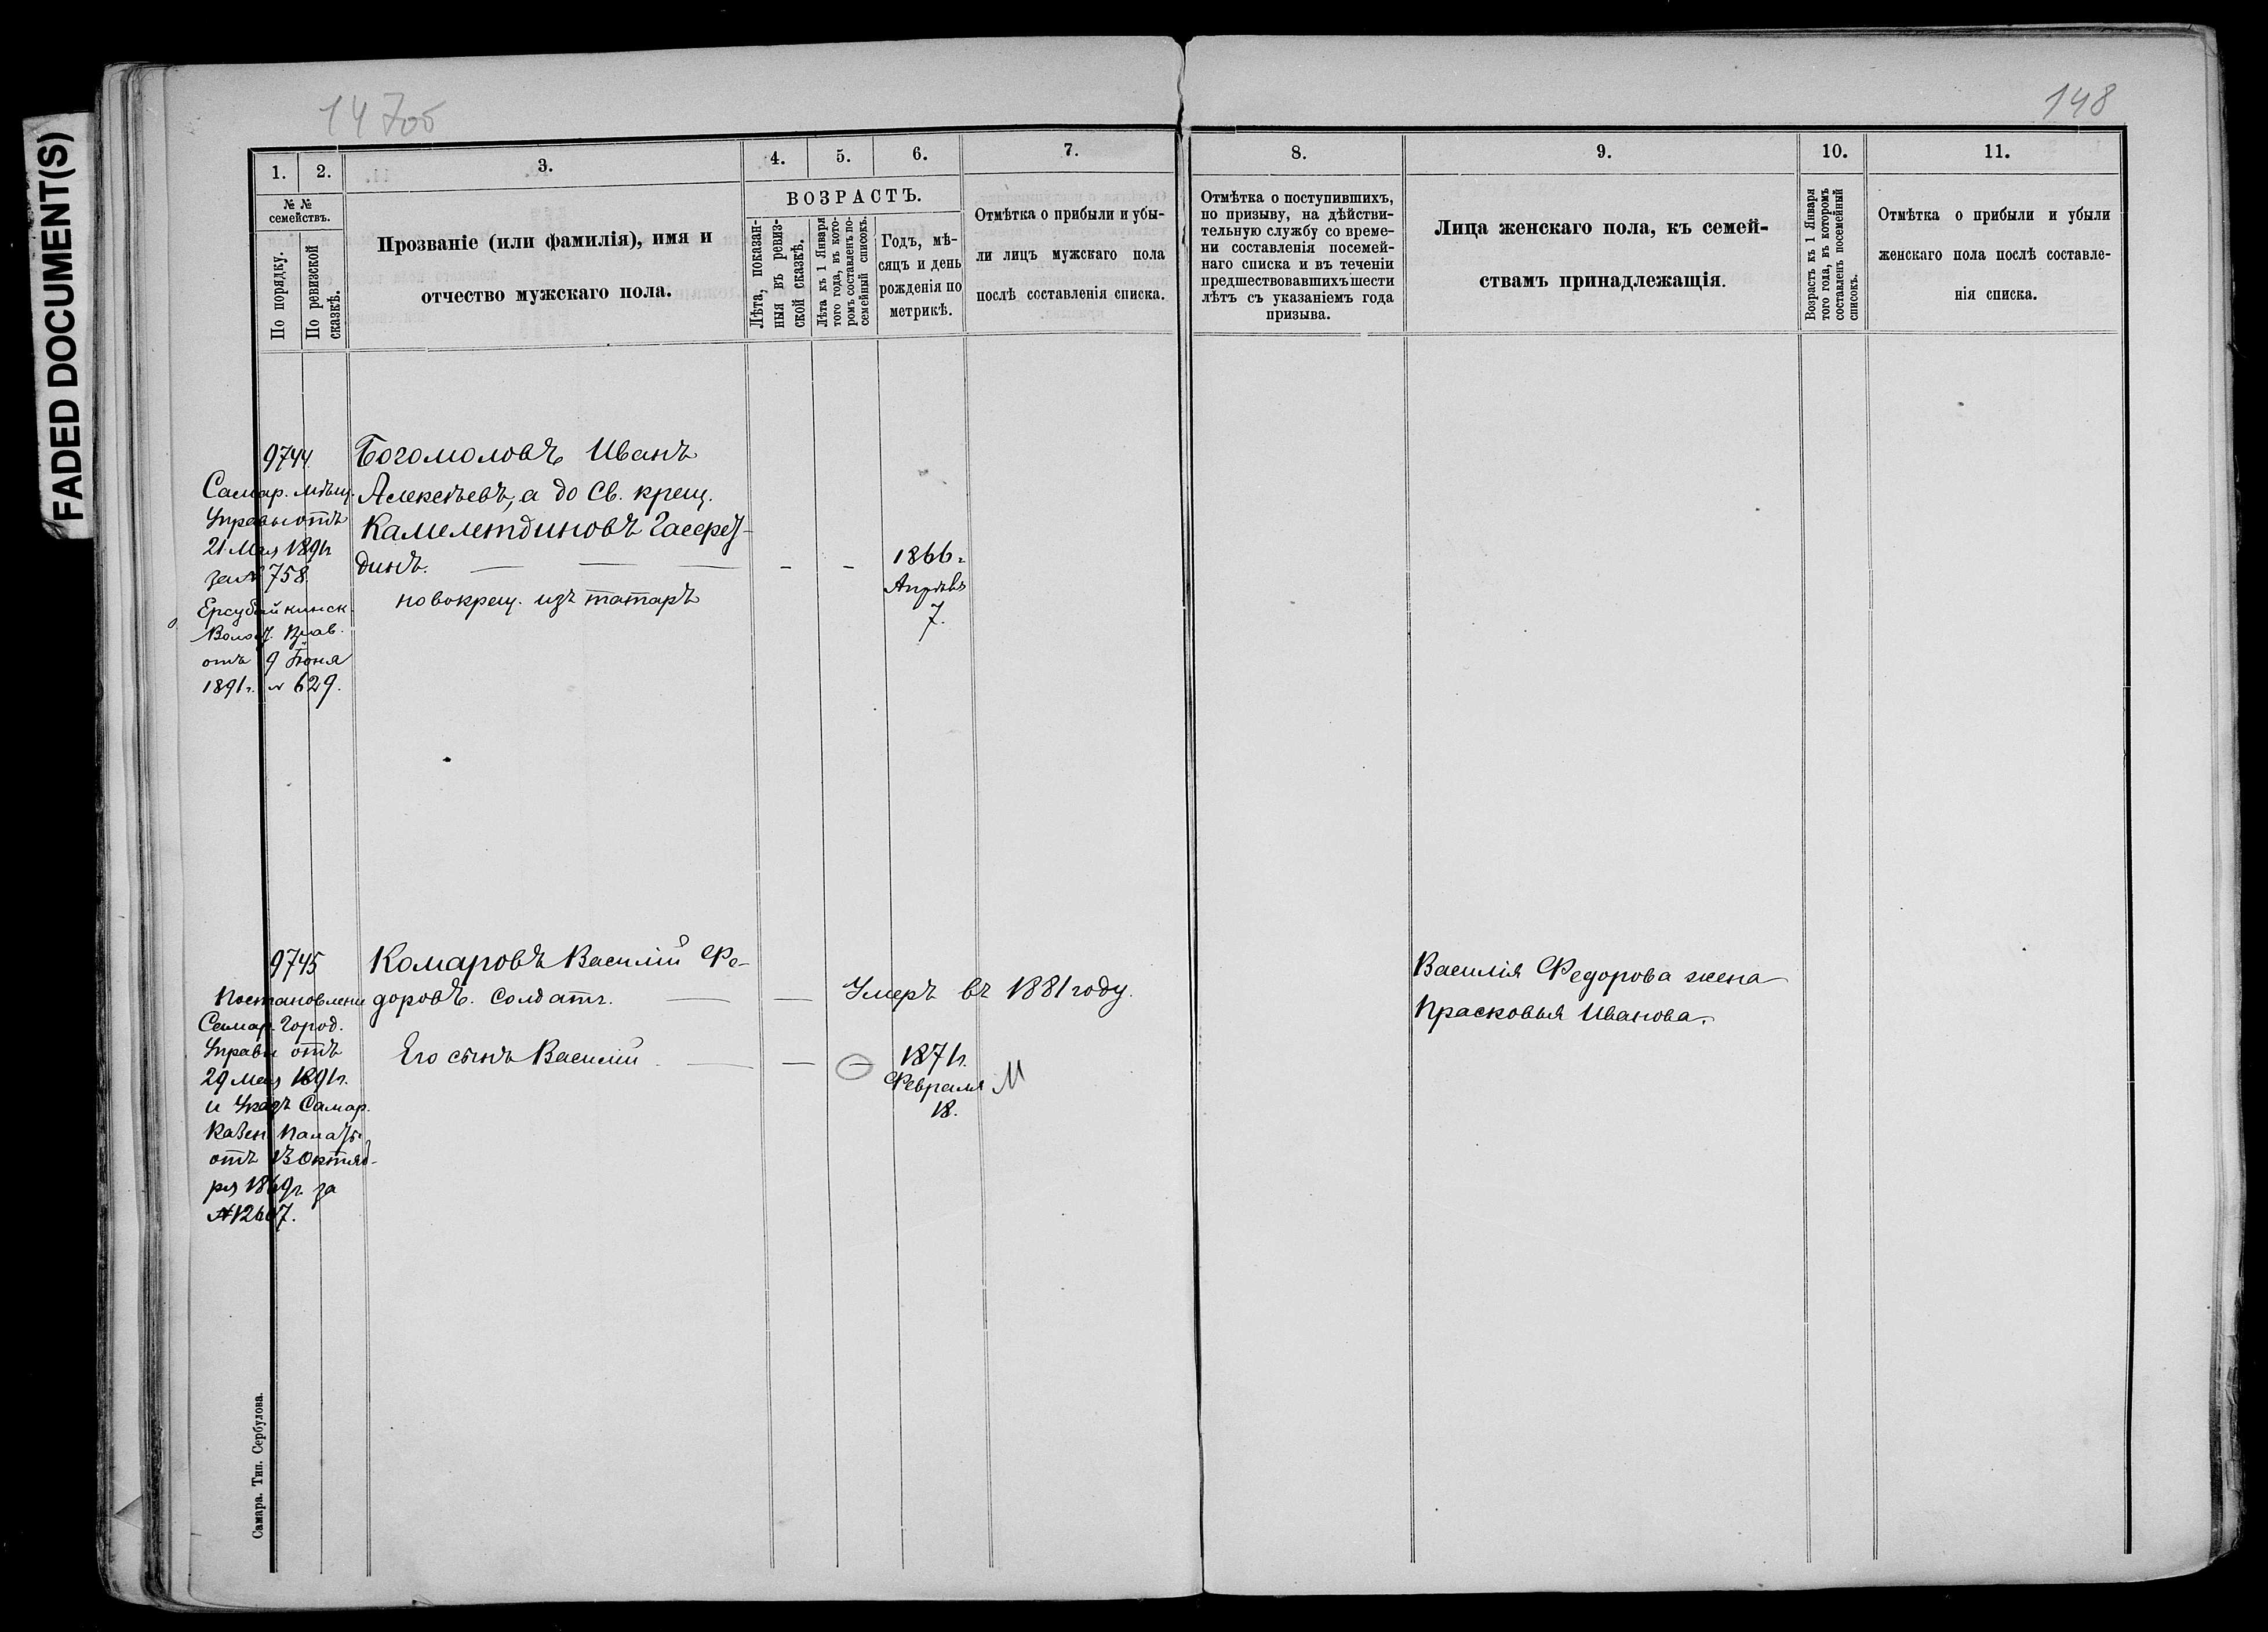 FADED DOCUMENT(S)
148
1.
2.
3.
4.
5.
6.
7.
8.
9.
10.
11.
№ №
семействъ.
По порядку.
По ревизской
сказкѣ.
Прозваніе (или фамилія), имя и
отчество мужскаго пола.
ВОЗРАСТЪ.
Лѣта, показан-
ныя въ ревиз-
ской сказкѣ.
Лѣта къ 1 Января
того года, въ кото-
ромъ составленъ по-
семейный списокъ.
Годъ, мѣ-
сяцъ и день
рожденія по
метрикѣ.
Отмѣтка о прибыли и убы-
ли лицъ мужскаго пола
послѣ составленія списка.
Отмѣтка о поступившихъ,
по призыву, на дѣйстви-
тельную службу со време-
ни составленія посемей-
наго списка и въ теченіи
предшествовавшихъ шести
лѣтъ съ указаніемъ года
призыва.
Лица женскаго пола, къ семей-
ствамъ принадлежащія.
Возрастъ къ 1 Января
того года, въ которомъ
составленъ посемейный
списокъ.
Отмѣтка о прибыли и убыли
женскаго пола послѣ составле-
нія списка.
9744
Самар. мѣщ.
Управы отъ
21 Мая 1891 г.
за № 758.
Ерсубайкинск.
Волос.
отъ 9 Іюня
1891 г. № 629.
Богомоловъ Иванъ
Алексѣевъ, а до Св. крещ.
Камелетдиновъ
динъ.
новокрещ. изъ татаръ
1866 г.
7.
9745
Постановлени
Самар. Город.
Управы отъ
29 Мая 1891 г.
и Указъ Самар.
Казен. Палаты
отъ 13 Октяб-
ря 1869 г. за
Комаровъ Василій Ѳе-
доровъ. солдатъ.
Умеръ въ 1881 году.
Его сынъ Василій
1871 г.
Февраля
18.
М
Василія Федорова жена
Прасковья Иванова.
Самара. Тип. Сербулова.